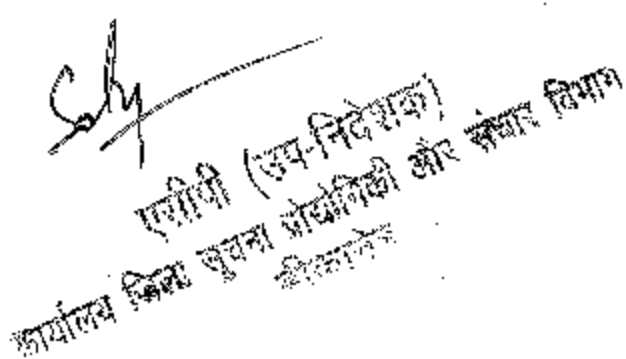 एसीपी (उप-निदेशक)
कार्यालय जिला सूचना प्रौद्योगिकी और संचार विभाग
बीकानेर